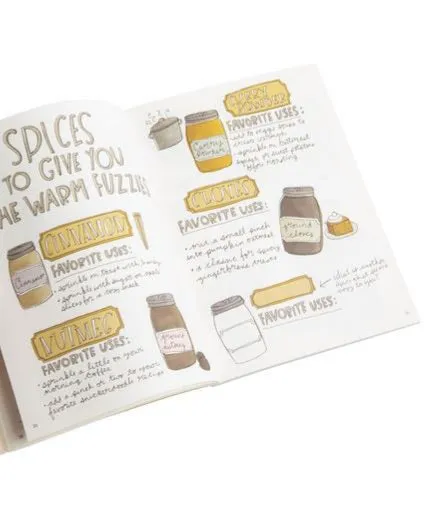 SPICES
TO GIVE YOU
THE WARM FUZZIES
CINNAMON
FAVORITE USES:
• sprinkle on toast with honey
• sprinkle with sugar on apple
slices for a cozy snack
Cinnamon
NUTMEG
FAVORITE USES:
• sprinkle a little on your
morning coffee
• add a pinch or two to your
favorite snickerdoodle recipe
ground
nutmeg
CURRY
POWDER
FAVORITE USES:
• add to
• sprinkle on buttered
before roasting
Curry
powder
CLOVES
FAVORITE USES:
• mix a small pinch
into pumpkin oatmeal
• a classic for
gingerbread
ground
cloves
FAVORITE USES:
what is another
spice that feels
cozy to you?